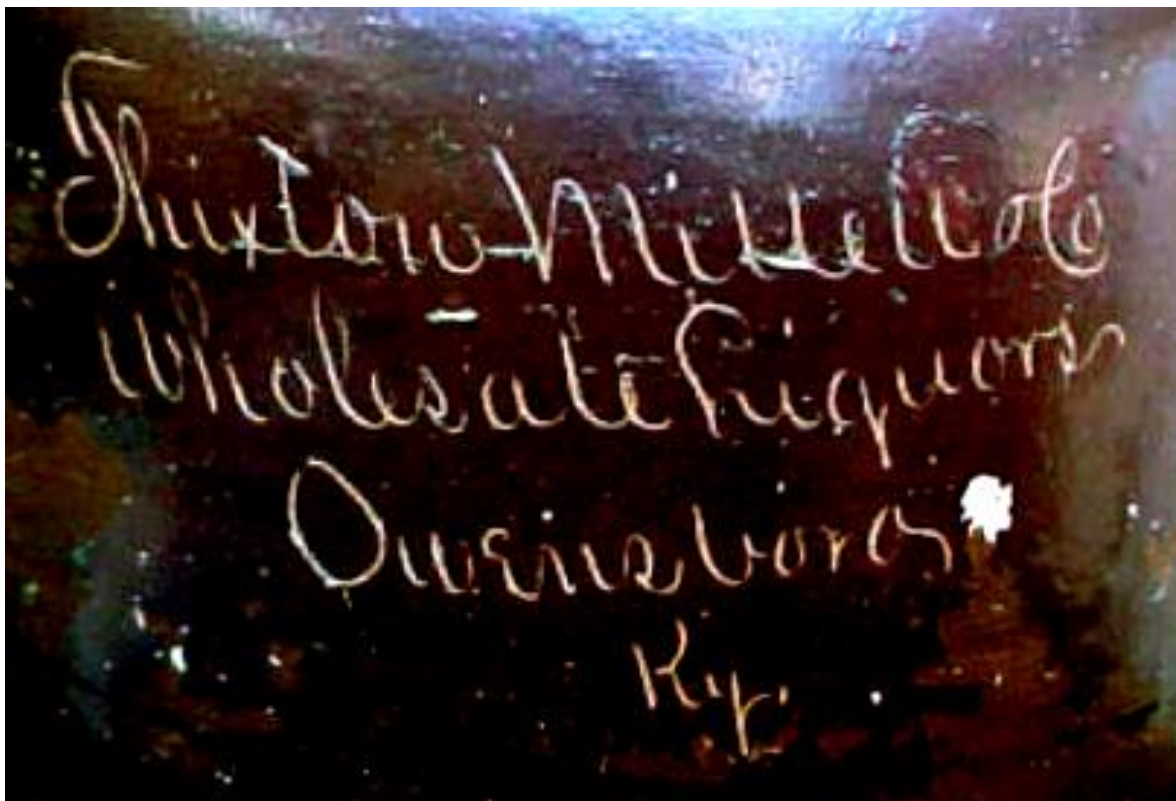 Thixton Millett Co
Wholesale Liquors
Owensboro
Ky.